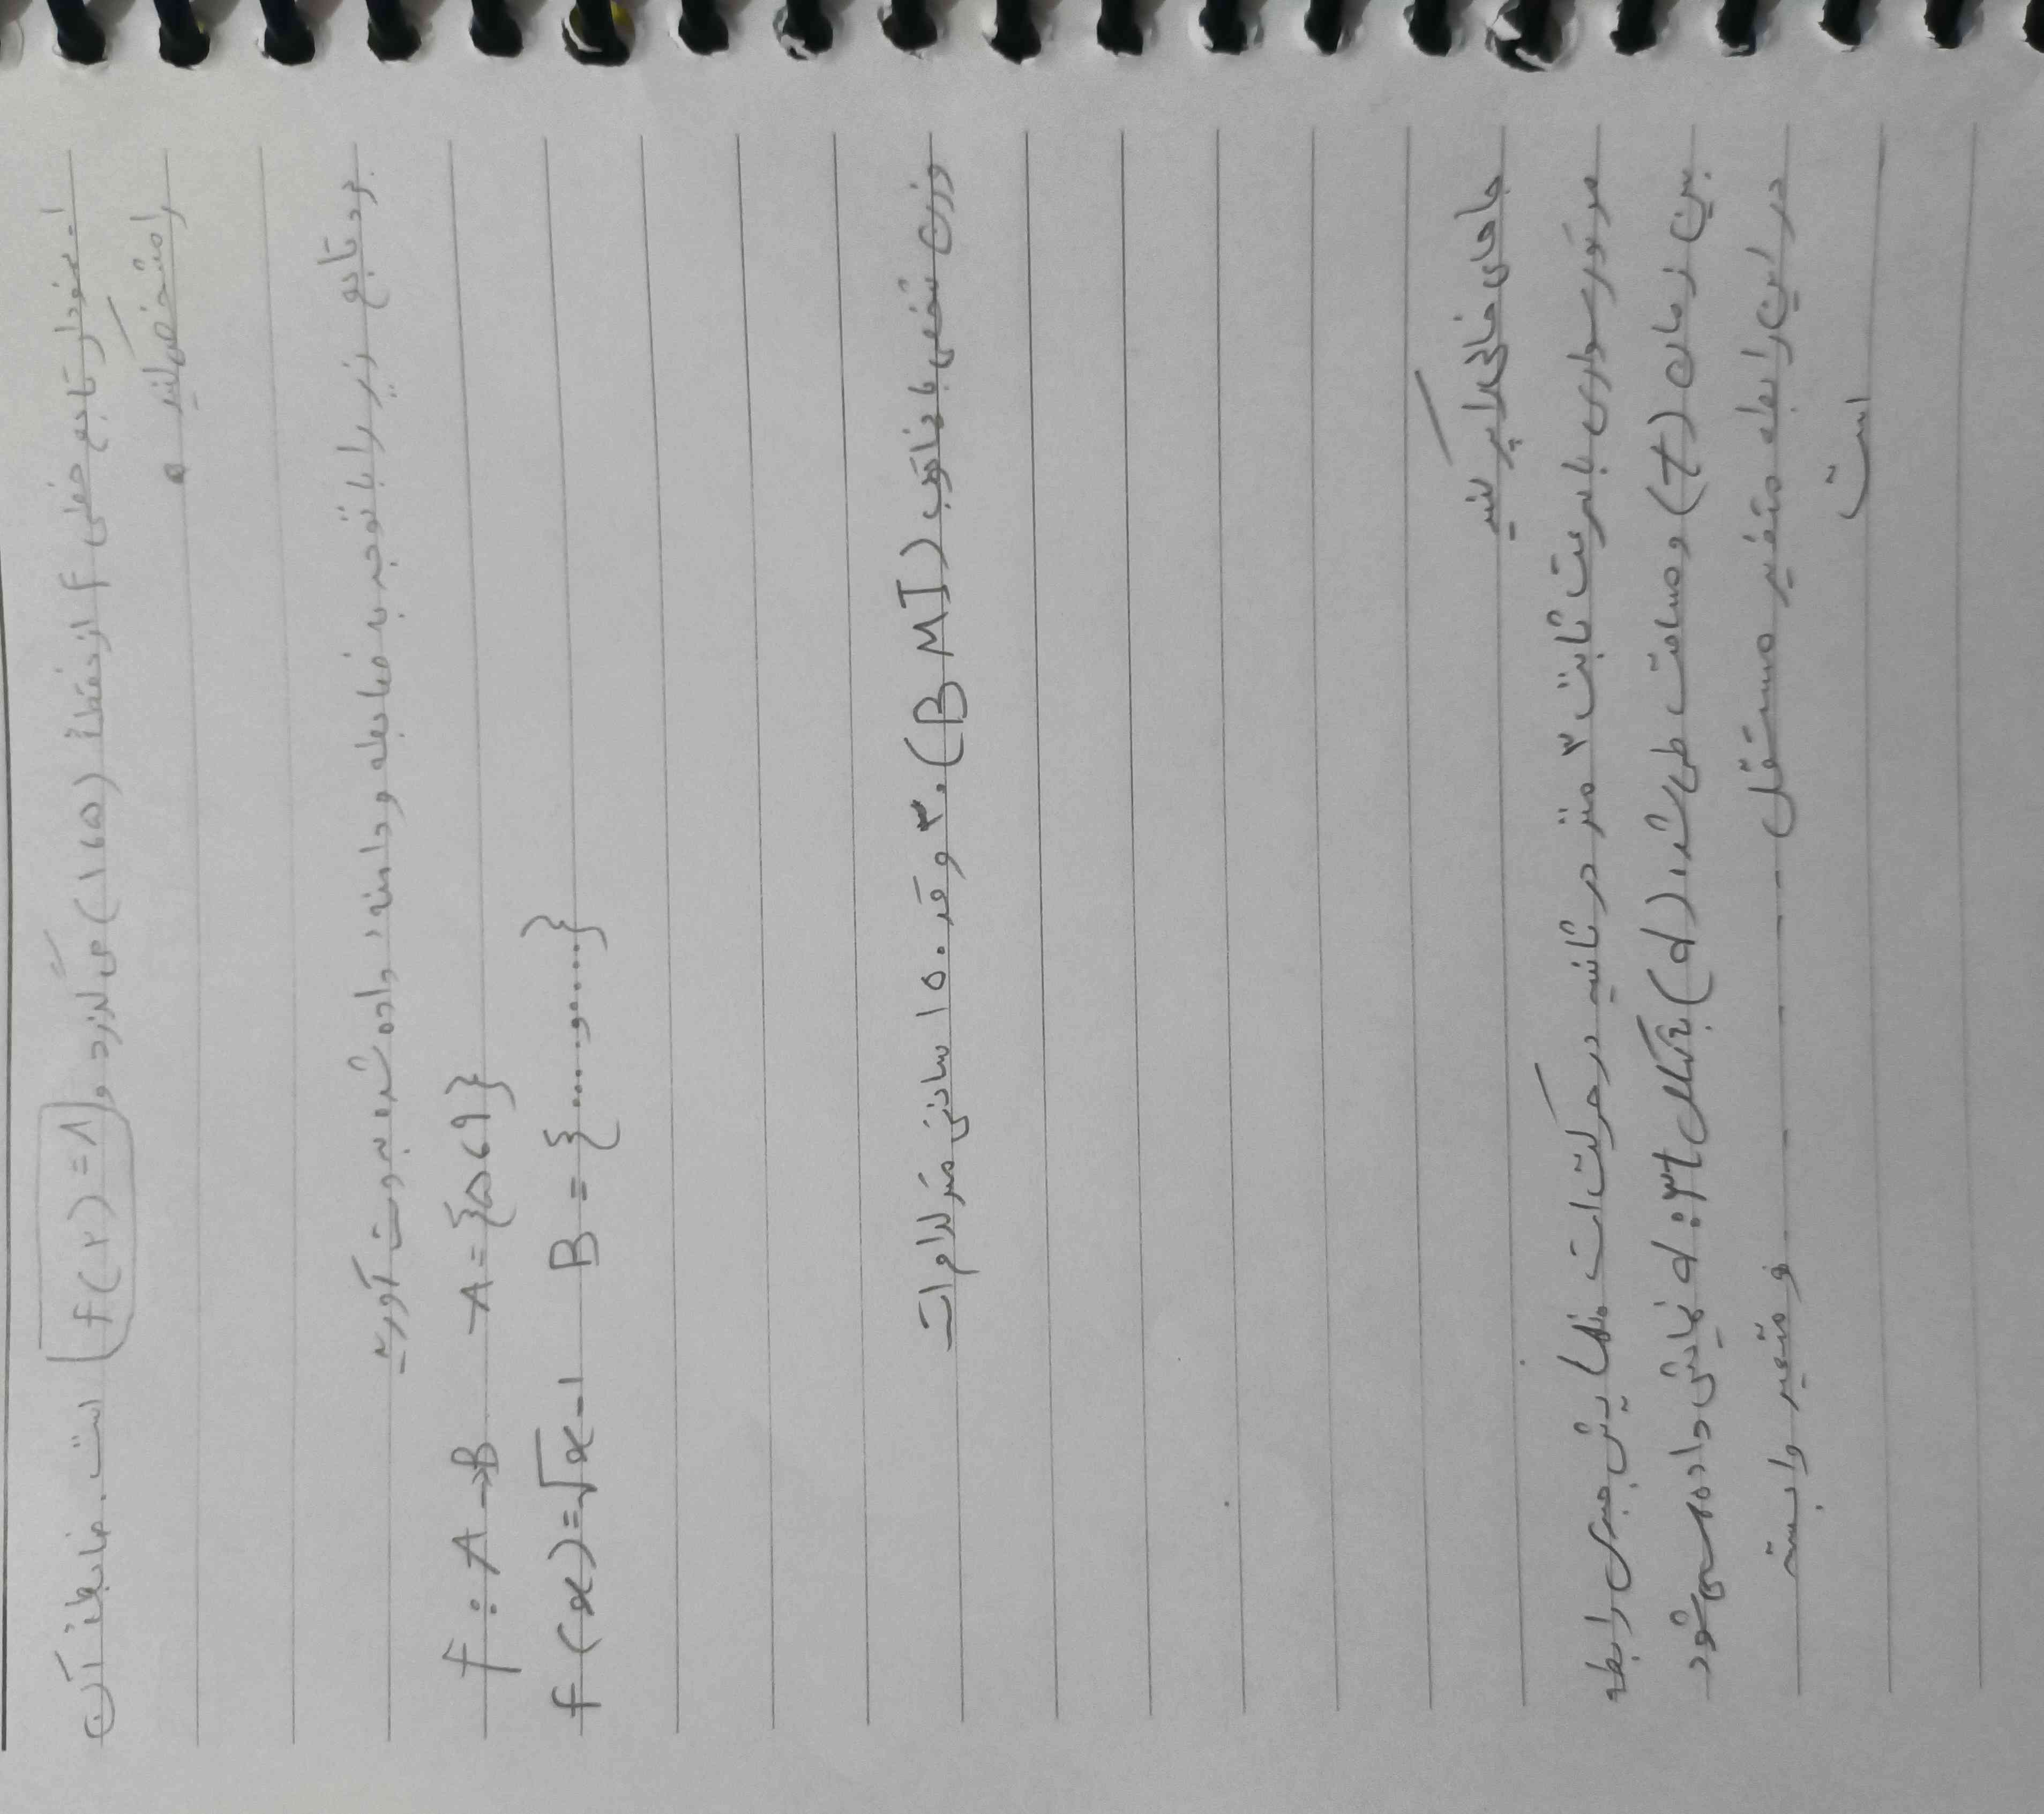 ۱- نمودار تابع خطی f از نقطهٔ (۱،۵) می‌گذرد و f(۲)=۸ است. ضابطهٔ آن
را مشخص کنید.
برد تابع زیر را با توجه به ضابطه و دامنهٔ داده شده بدست آورید
f: A→B A={۵،۹}
f(x)=√x-1 B={.....و.....}
وزن شخصی با نماتوب (BMI) ۳۰ و قد ۱۵۰ سانتی متر کدام است
جاهای خالی را پر کنید
موتورسواری با سرعت ثابت ۳ متر در ثانیه در حرکت است نمایش جبری رابطه
بین زمان (t) و مسافت طی شده (d) بشکل d:۳t نمایش داده می شود
در این رابطه متغیر مستقل ........ و متغیر وابسته
است